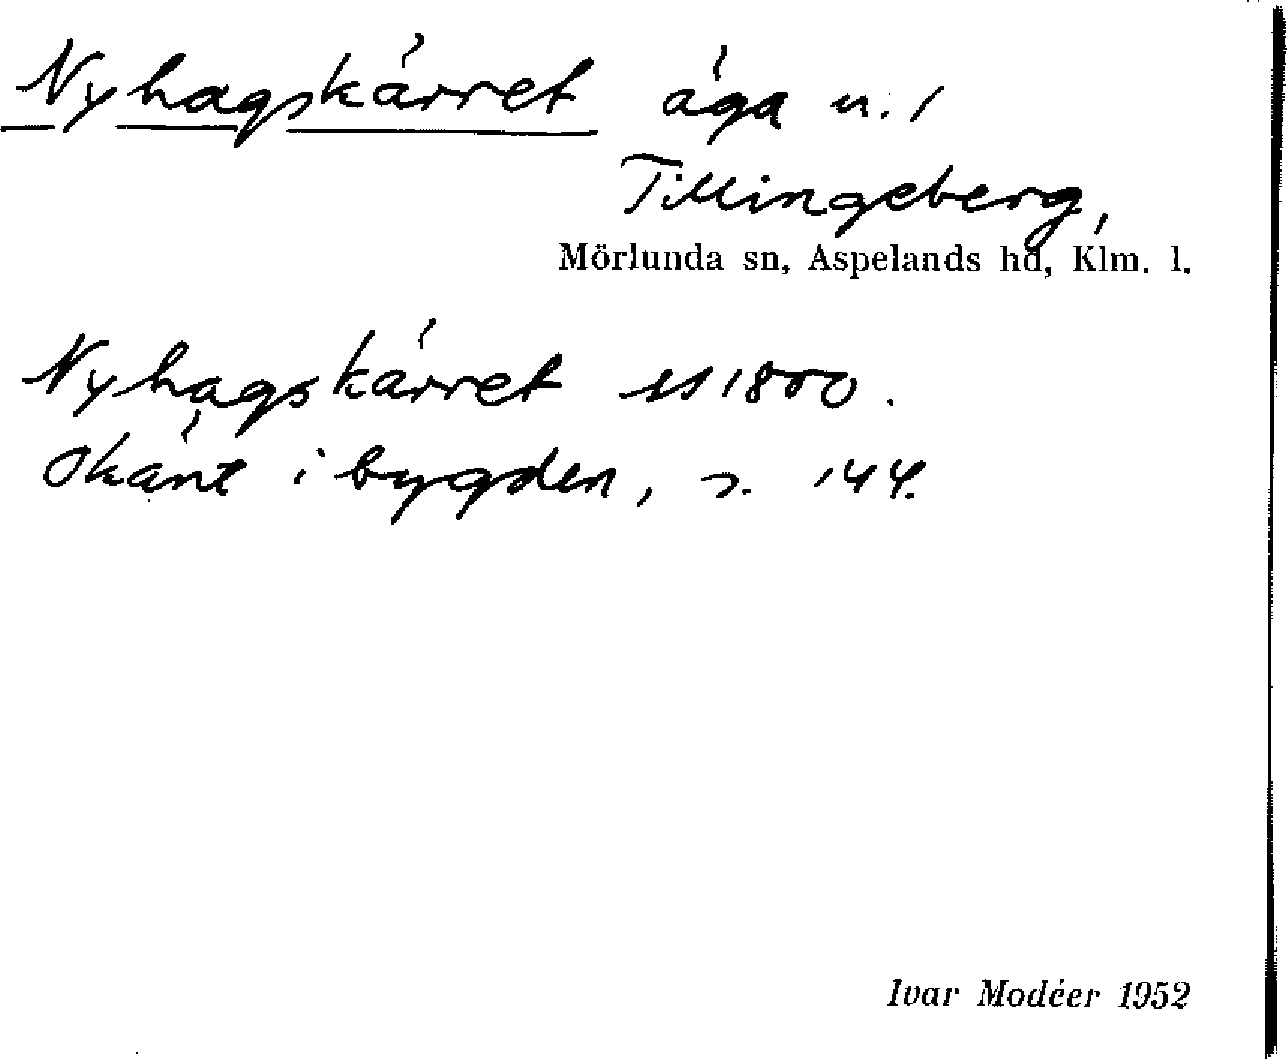 Nyhagskärret äga u. /
Tillingeberg,
Mörlunda sn, Aspelands hd, Klm. l.
Nyhagskärret 1800.
Okänt i bygden, s. 144.
Ivar Modéer 1952